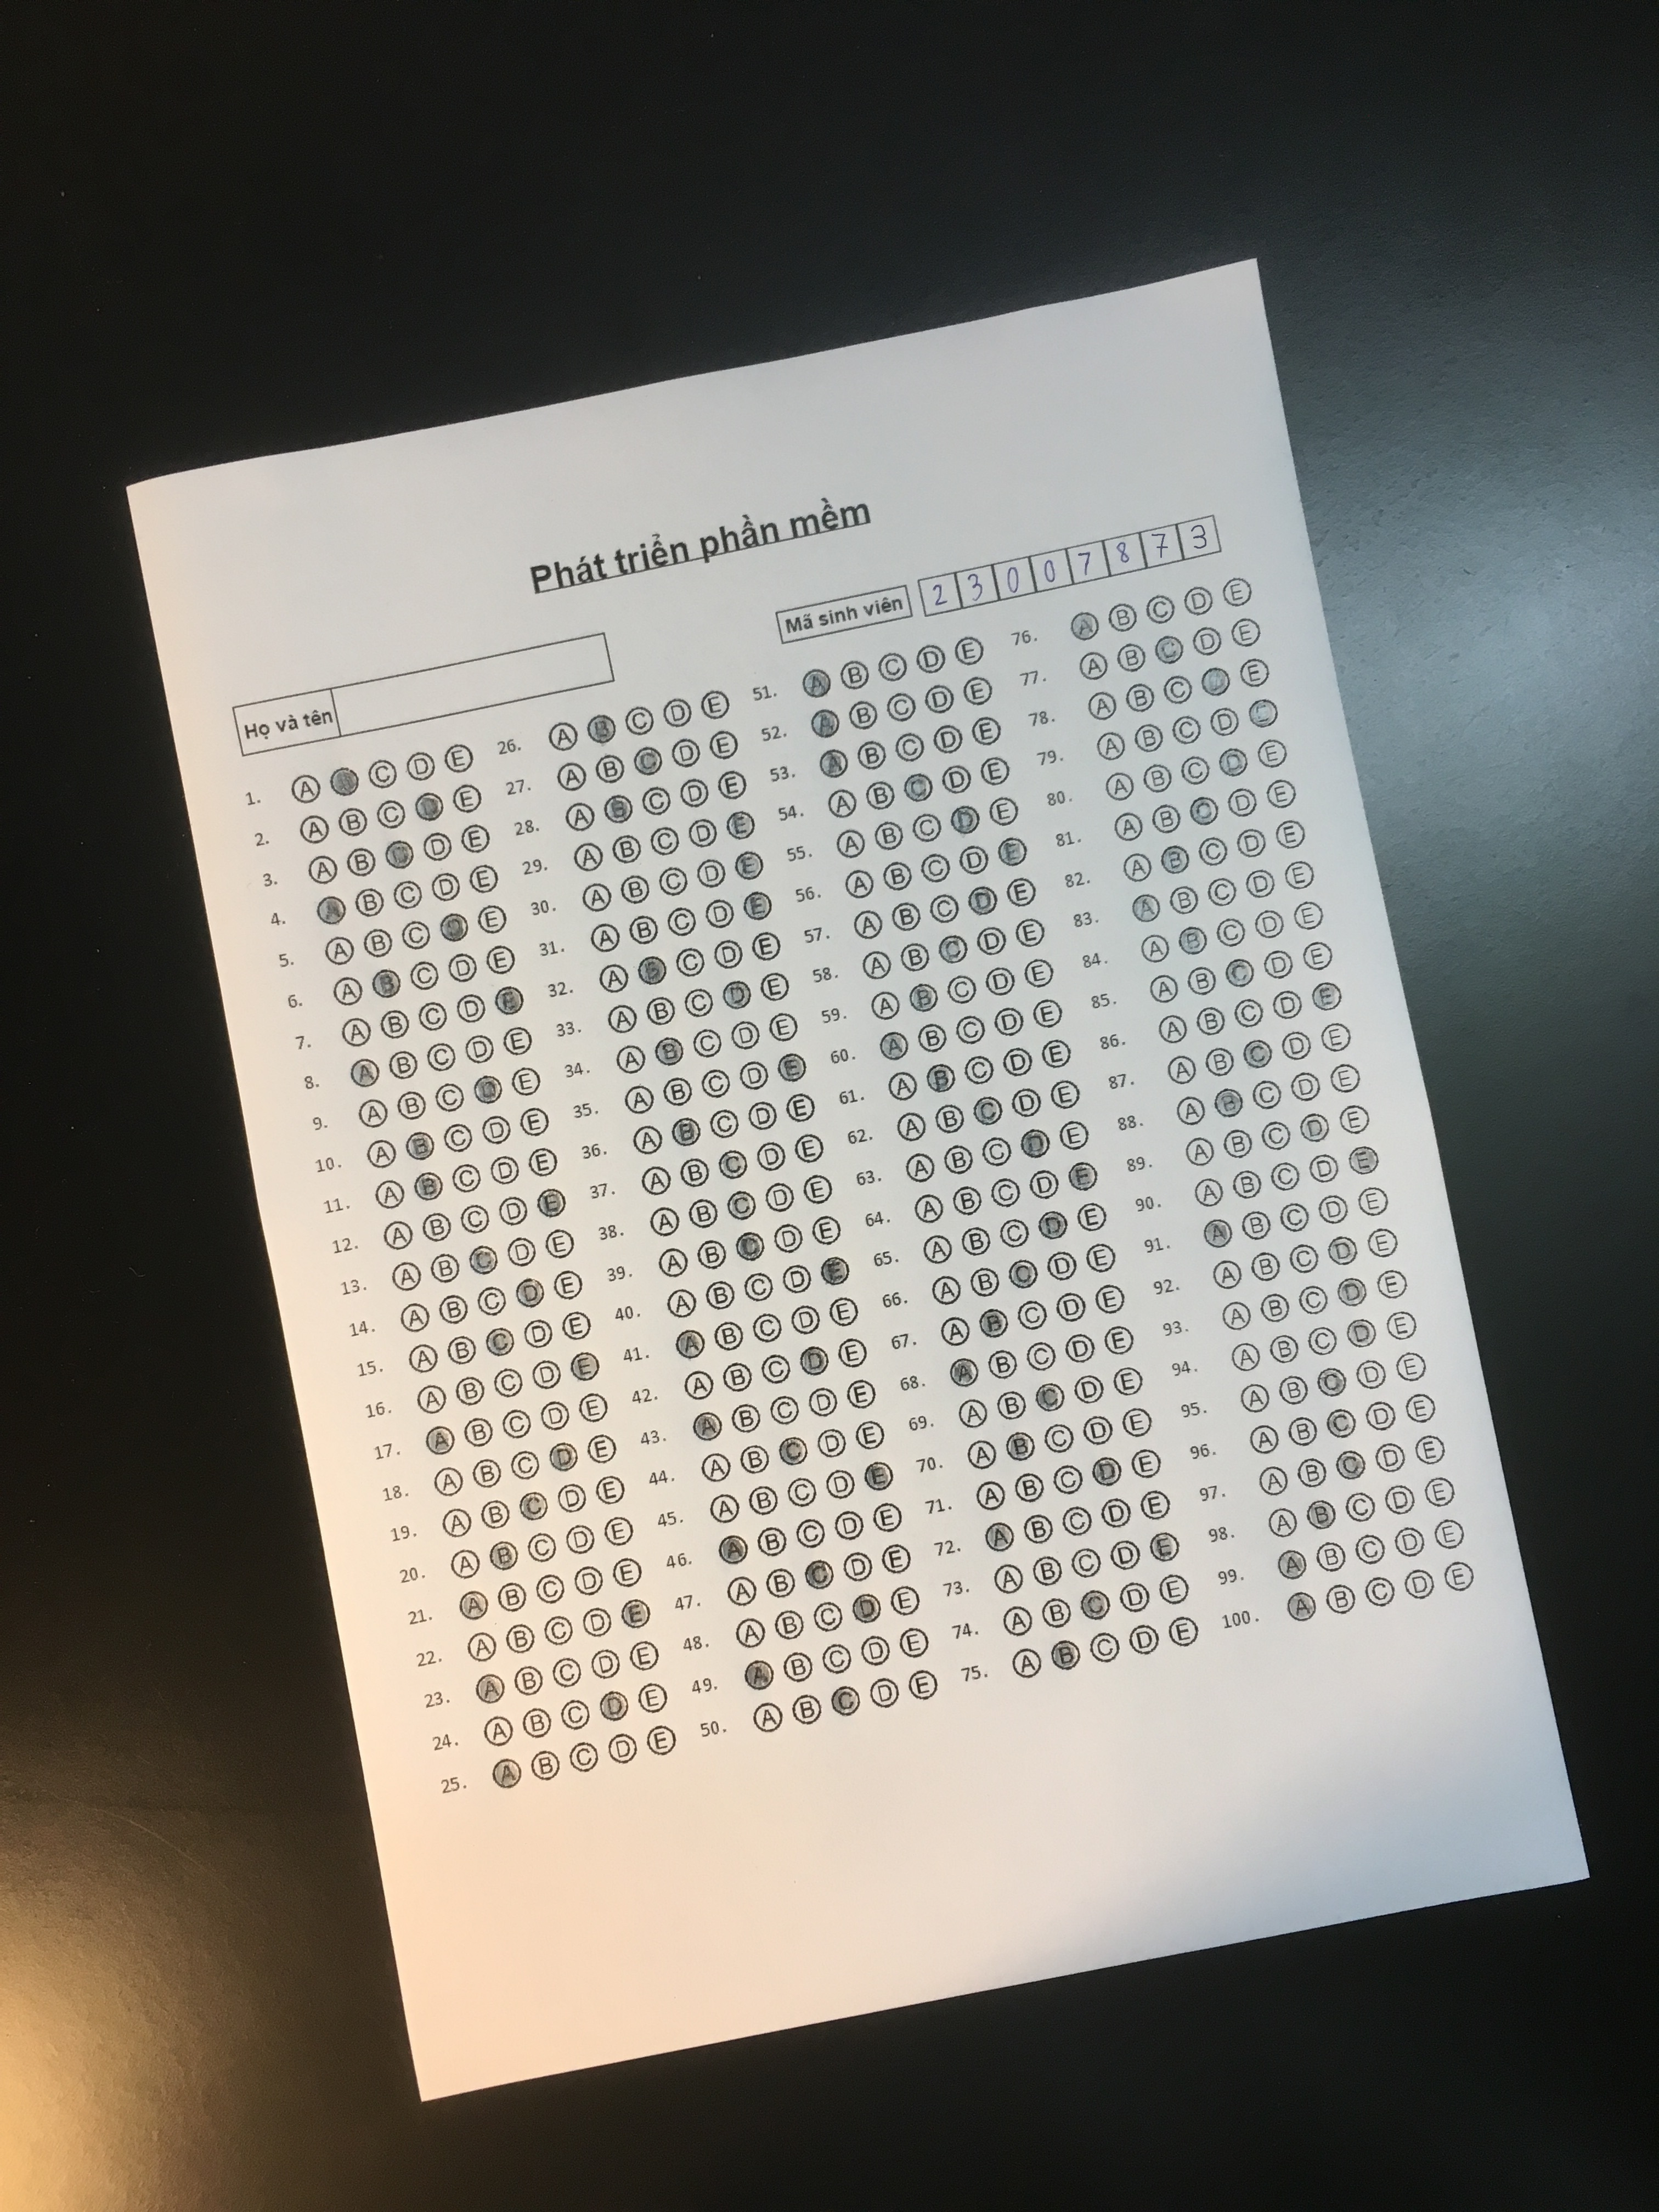 Phát triển phần mềm
Họ và tên
Mã sinh viên 2 3 0 0 7 8 7 3
1. A B C D E
2. A B C D E
3. A B C D E
4. A B C D E
5. A B C D E
6. A B C D E
7. A B C D E
8. A B C D E
9. A B C D E
10. A B C D E
11. A B C D E
12. A B C D E
13. A B C D E
14. A B C D E
15. A B C D E
16. A B C D E
17. A B C D E
18. A B C D E
19. A B C D E
20. A B C D E
21. A B C D E
22. A B C D E
23. A B C D E
24. A B C D E
25. A B C D E
26. A B C D E
27. A B C D E
28. A B C D E
29. A B C D E
30. A B C D E
31. A B C D E
32. A B C D E
33. A B C D E
34. A B C D E
35. A B C D E
36. A B C D E
37. A B C D E
38. A B C D E
39. A B C D E
40. A B C D E
41. A B C D E
42. A B C D E
43. A B C D E
44. A B C D E
45. A B C D E
46. A B C D E
47. A B C D E
48. A B C D E
49. A B C D E
50. A B C D E
51. A B C D E
52. A B C D E
53. A B C D E
54. A B C D E
55. A B C D E
56. A B C D E
57. A B C D E
58. A B C D E
59. A B C D E
60. A B C D E
61. A B C D E
62. A B C D E
63. A B C D E
64. A B C D E
65. A B C D E
66. A B C D E
67. A B C D E
68. A B C D E
69. A B C D E
70. A B C D E
71. A B C D E
72. A B C D E
73. A B C D E
74. A B C D E
75. A B C D E
76. A B C D E
77. A B C D E
78. A B C D E
79. A B C D E
80. A B C D E
81. A B C D E
82. A B C D E
83. A B C D E
84. A B C D E
85. A B C D E
86. A B C D E
87. A B C D E
88. A B C D E
89. A B C D E
90. A B C D E
91. A B C D E
92. A B C D E
93. A B C D E
94. A B C D E
95. A B C D E
96. A B C D E
97. A B C D E
98. A B C D E
99. A B C D E
100. A B C D E